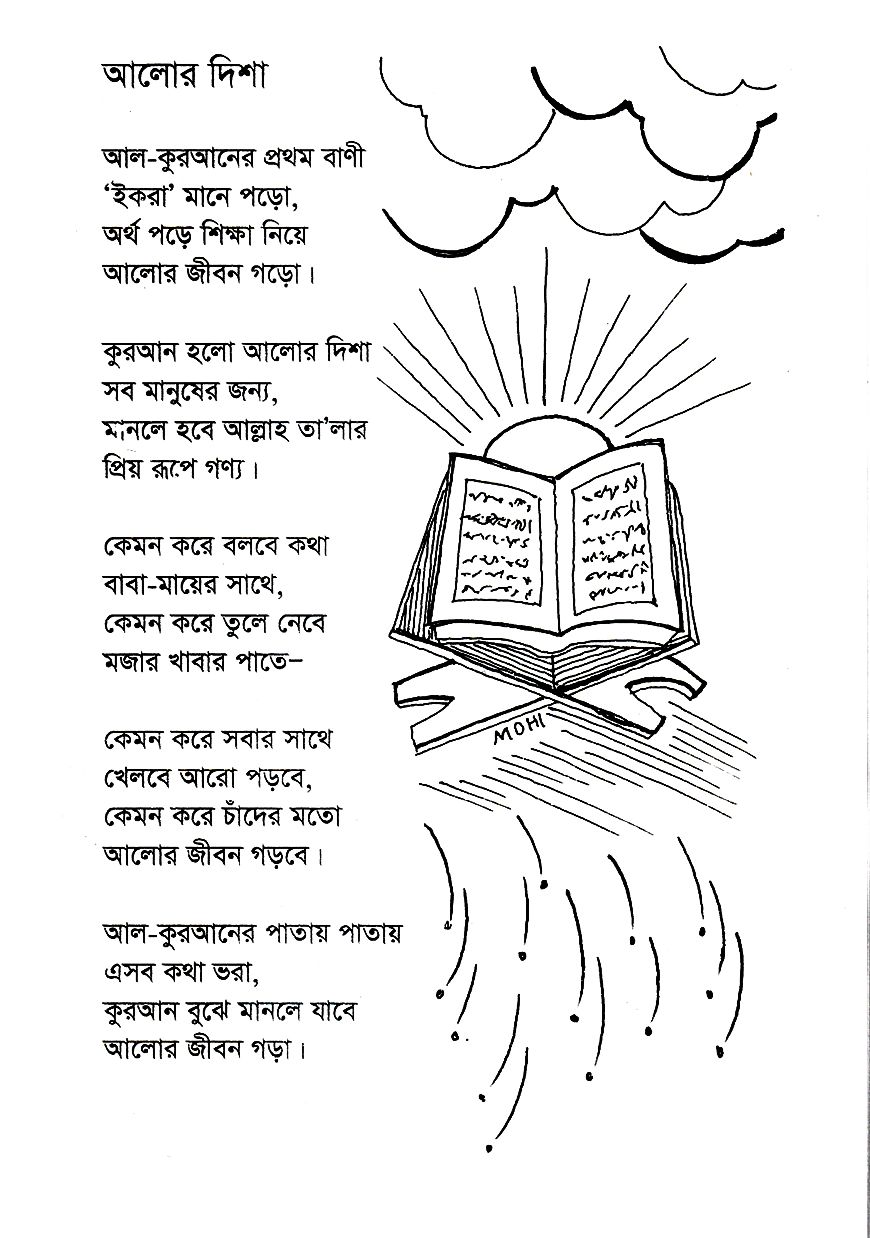 আলোর দিশা
আল-কুরআনের প্রথম বাণী
‘ইকরা’ মানে পড়ো,
অর্থ পড়ে শিক্ষা নিয়ে
আলোর জীবন গড়ো।
কুরআন হলো আলোর দিশা
সব মানুষের জন্য,
মানলে হবে আল্লাহ তা’লার
প্রিয় রূপে গণ্য।
কেমন করে বলবে কথা
বাবা-মায়ের সাথে,
কেমন করে তুলে নেবে
মজার খাবার পাতে–
কেমন করে সবার সাথে
খেলবে আরো পড়বে,
কেমন করে চাঁদের মতো
আলোর জীবন গড়বে।
আল-কুরআনের পাতায় পাতায়
এসব কথা ভরা,
কুরআন বুঝে মানলে যাবে
আলোর জীবন গড়া।
MOHI